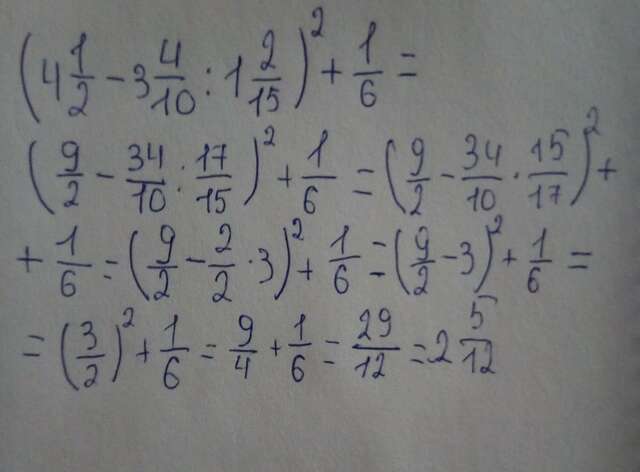 (4 1/2 - 3 4/10 : 1 2/15)² + 1/6 =
(9/2 - 34/10 : 17/15)² + 1/6 = (9/2 - 34/10 · 15/17)² +
+ 1/6 = (9/2 - 2/2 · 3)² + 1/6 = (9/2 - 3)² + 1/6 =
= (3/2)² + 1/6 = 9/4 + 1/6 = 29/12 = 2 5/12